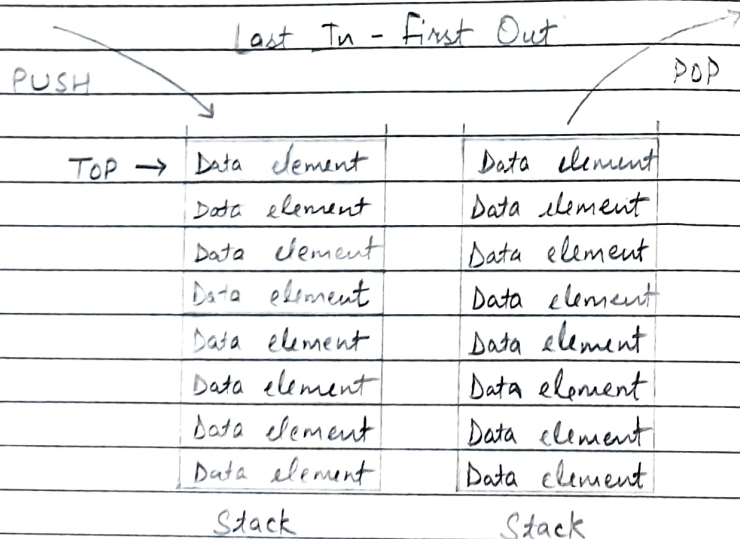 Last In - First Out
PUSH
POP
TOP → Data element Data element
Data element Data element
Data element Data element
Data element Data element
Data element Data element
Data element Data element
Data element Data element
Data element Data element
Stack Stack